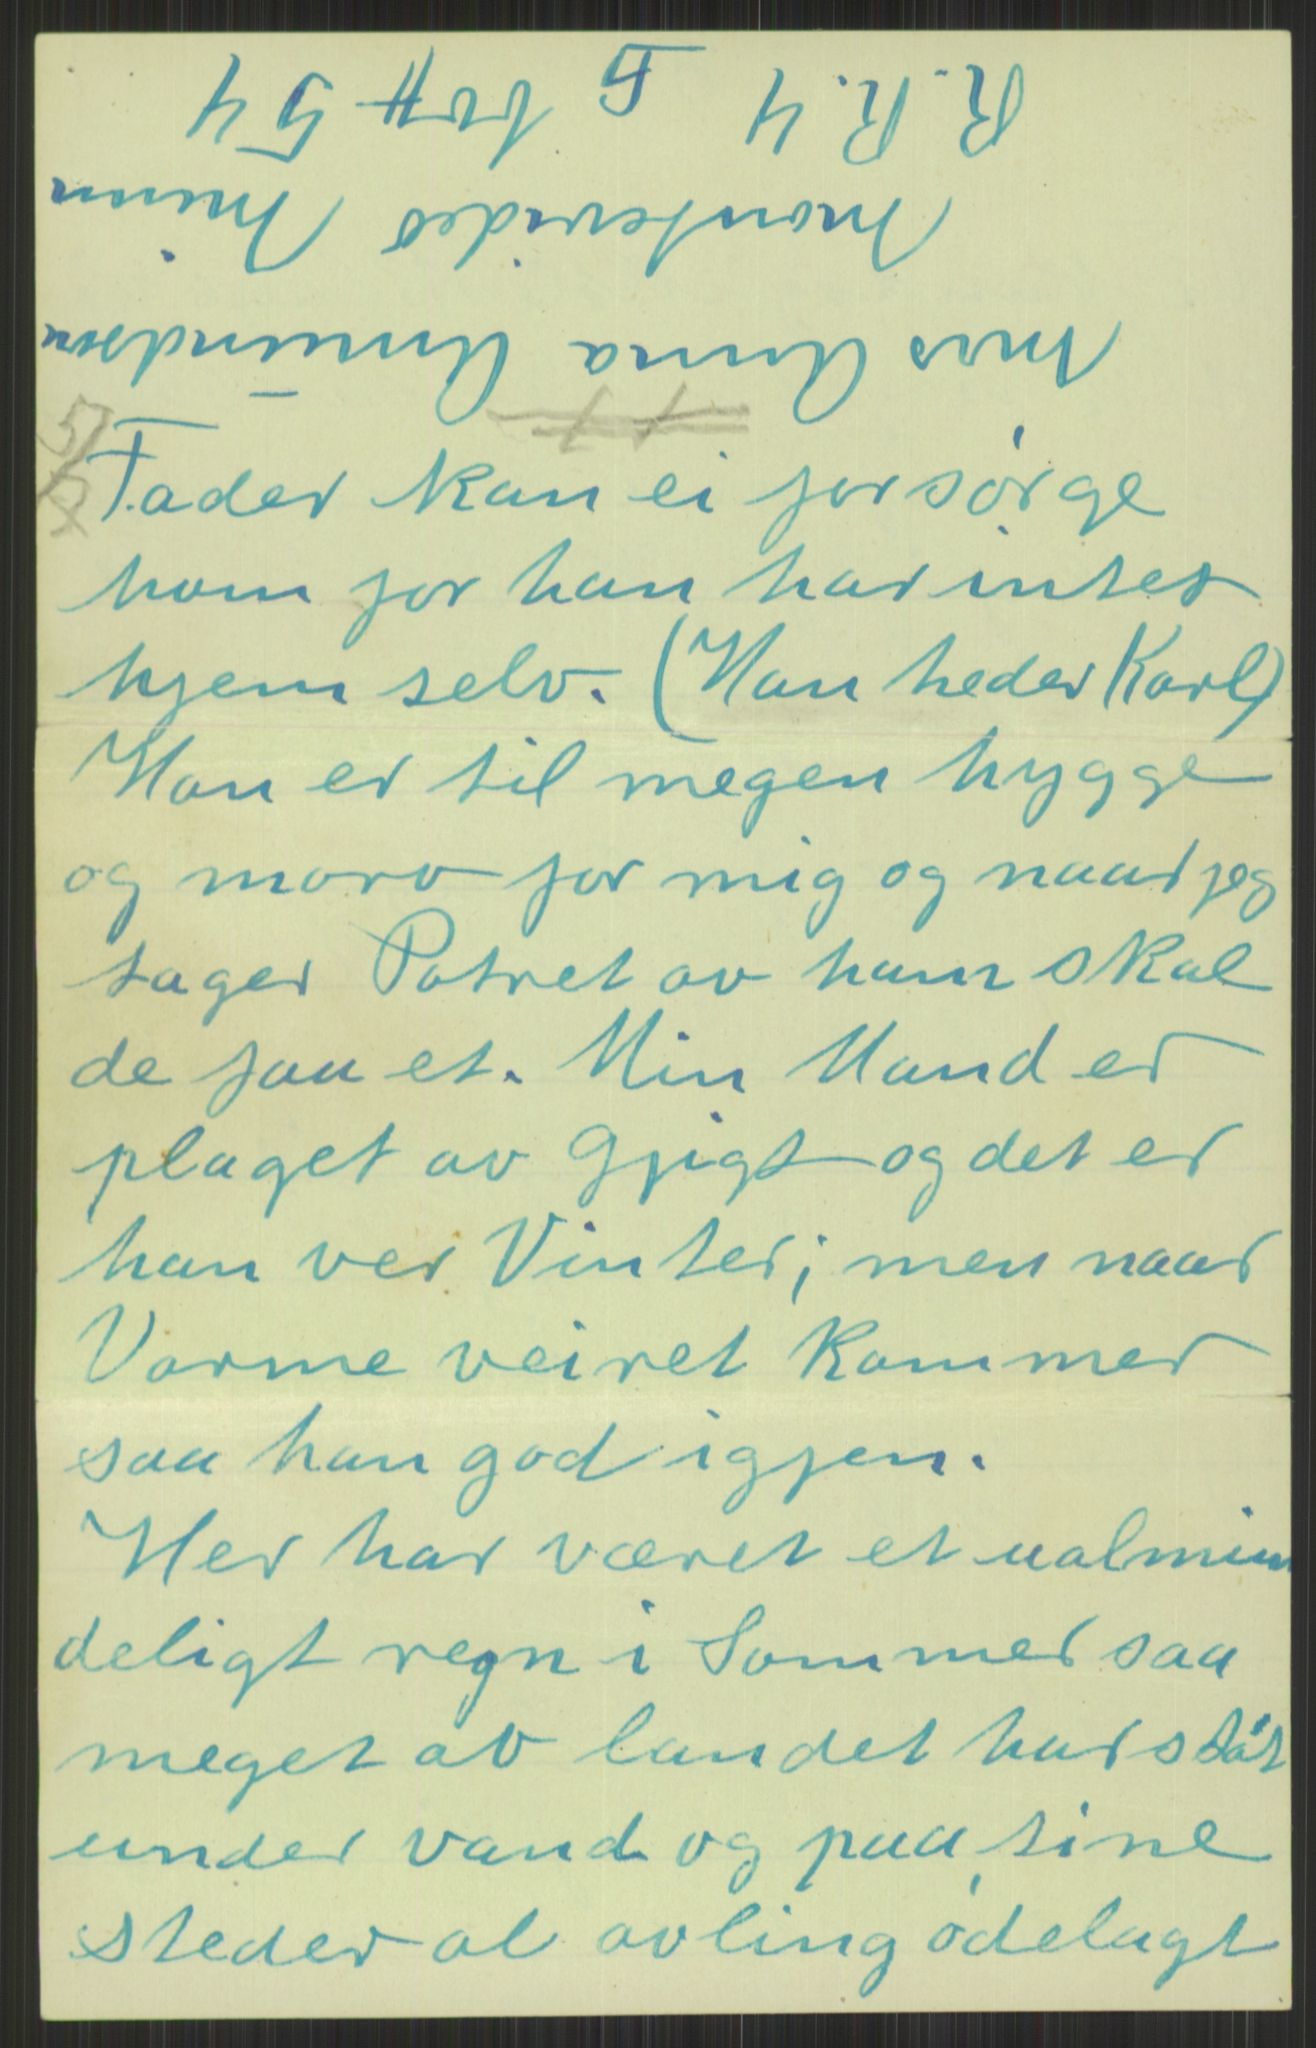 Mrs Anna Amundson
Montevideo Minn
R.R. 4 Box # 54
Fader kan ei forsørge
ham for han har intet
hjem selv. (Han heder Karl)
Han er til megen hygge
og moro for mig og naar jeg
tager Patret av ham skal
de faa et. Min Mand er
plaget av Gjigt og det er
han ver Vinter; men naar
Varme veiret kommer
saa han god igjen.
Her har været et ualmin
deligt regn i Sommer saa
meget av landet har ståt
under vand og paa sine
steder al avling ødelagt